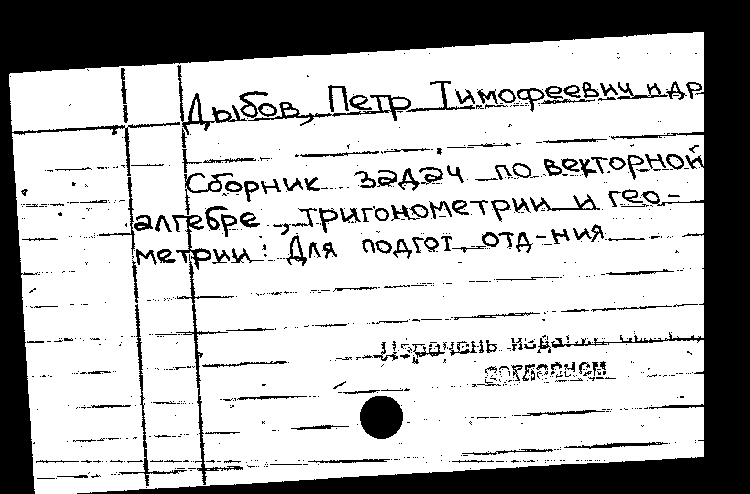 Дыбов, Петр Тимофеевич и др
Сборник задач по векторной
алгебре, тригонометрии и гео-
метрии: Для подгот. отд-ния
Перечень издани